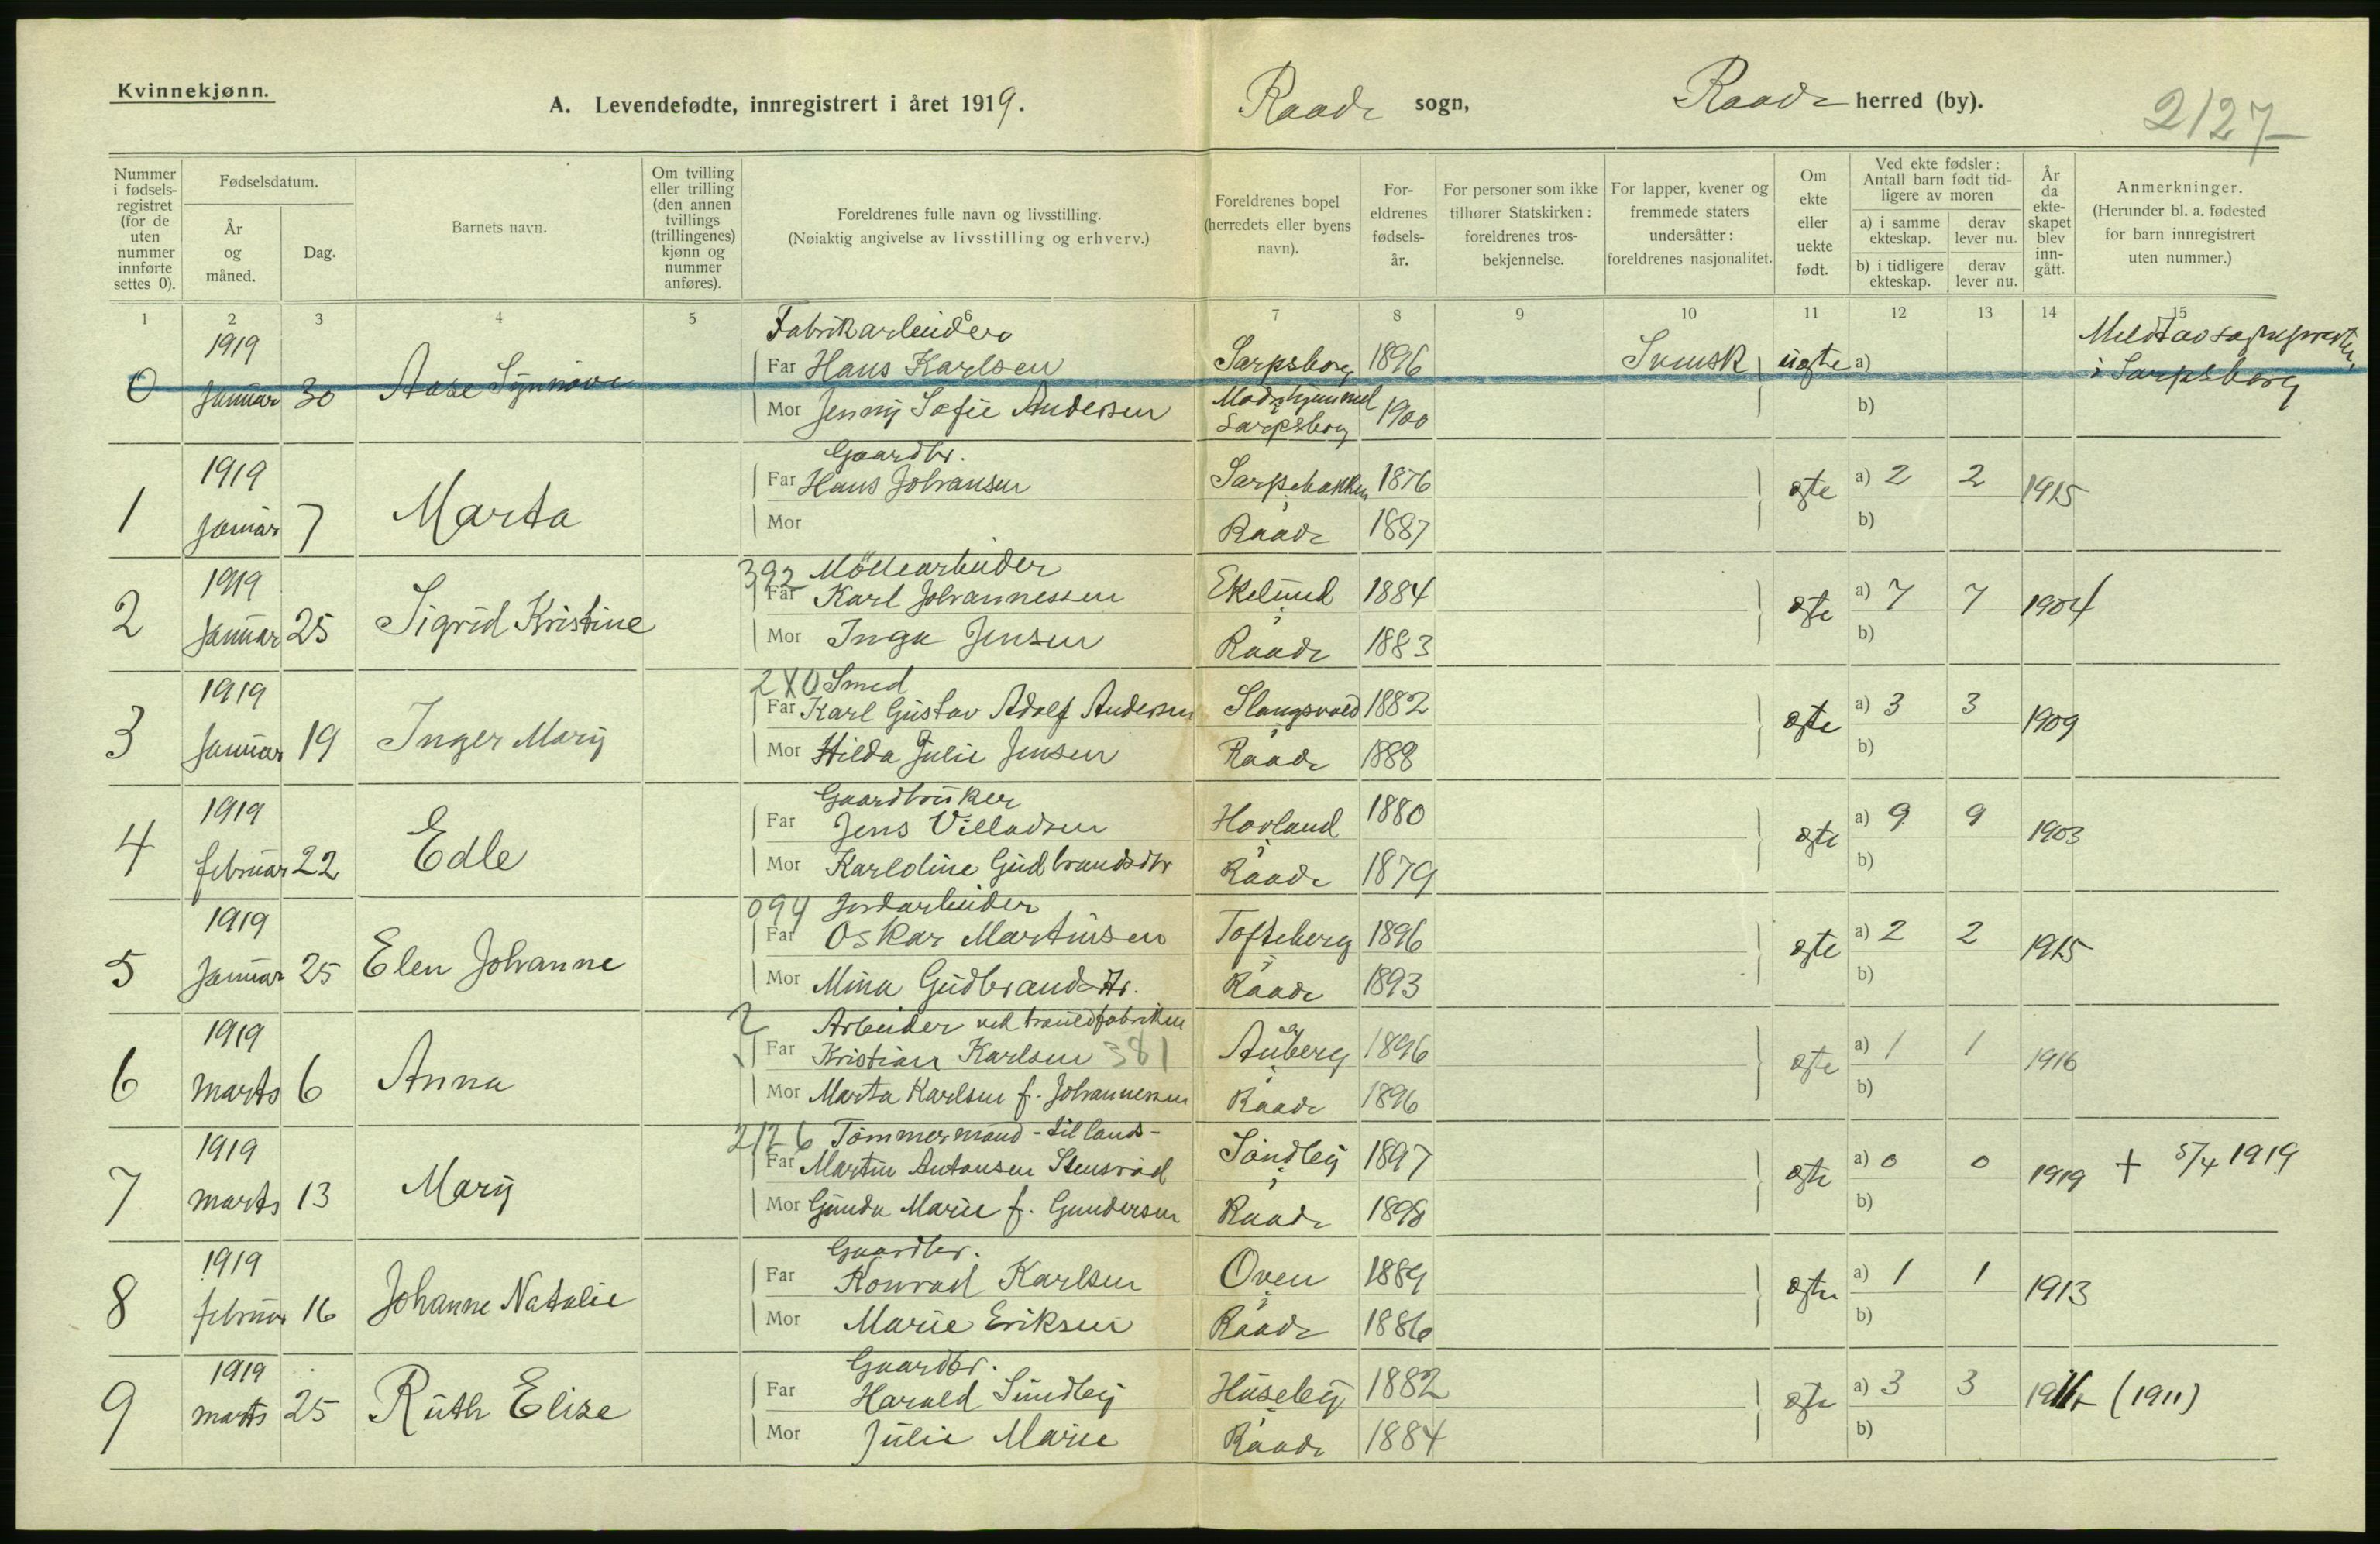 Kvinnekjønn.
A. Levendefødte, innregistrert i året 1919.
Raade sogn,
Raade herred (by).
2127
Nummer i fødsels-registret (for de uten nummer innførte settes 0).
Fødselsdatum.
År og måned.
Dag.
Barnets navn.
Om tvilling eller trilling (den annen tvillings (trillingenes) kjønn og nummer anføres).
Foreldrenes fulle navn og livsstilling.
(Nøiaktig angivelse av livsstilling og erhverv.)
Foreldrenes bopel (herredets eller byens navn).
For-eldrenes fødsels-år.
For personer som ikke tilhører Statskirken: foreldrenes tros-bekjennelse.
For lapper, kvener og fremmede staters undersåtter: foreldrenes nasjonalitet.
Om ekte eller uekte født.
Ved ekte fødsler: Antall barn født tid-ligere av moren
a) i samme ekteskap.
derav lever nu.
b) i tidligere ekteskap.
derav lever nu.
År da ekte-skapet blev inn-gått.
Anmerkninger.
(Herunder bl. a. fødested for barn innregistrert uten nummer.)
1 2 3 4 5 6 7 8 9 10 11 12 13 14 15
1919 Fabrikarbeider
0 Januar 30 Aase Synnöve Far Hans Karlsen Sarpsborg 1896 Svensk uegte a) Meldt av sognepresten
i Sarpsborg
Mor Jenny Sofie Andersen Sarpsborg 1900 b)
1919 Gaardbr.
Far Hans Johansen Sarpebakken 1876 a) 2 2
1 Januar 7 Marta Mor Raade 1887 egte b) 1915
1919 392 Möllearbeider
Far Karl Johannessen Ekelund 1884 a) 7 7
2 Januar 25 Sigrid Kristine Mor Inga Jensen Raade 1883 egte b) 1904
1919 240 Smed
Far Karl Gustav Adolf Andersen Slangsvold 1882 a) 3 3
3 Januar 19 Inger Mary Mor Hilda Julie Jensen Raade 1888 egte b) 1909
1919 Gaardbruker
Far Jens Villadsen Hovland 1880 a) 9 9
4 februar 22 Edle Mor Karloline Gudbrandsdtr Raade 1879 egte b) 1903
1919 094 Jordarbeider
Far Oskar Martinsen Tofteberg 1896 a) 2 2
5 Januar 25 Elen Johanne Mor Mina Gudbrandsdtr. Raade 1893 egte b) 1915
1919 Arbeider ved
Far Kristian Karlsen 381 Auberg 1896 a) 1 1
6 marts 6 Anna Mor Marta Karlsen f. Johannessen Raade 1896 egte b) 1916
1919 2126 Tömmermand - til lands -
Far Martin Antonsen Stensrød Sundby 1897 a) 0 0
7 marts 13 Mary Mor Gunda Marie f. Gundersen Raade 1898 egte b) 1919 + 5/4 1919
1919 Gaardbr.
Far Konrad Karlsen Oven 1889 a) 1 1
8 februar 16 Johanne Natalie Mor Marie Eriksen Raade 1886 egte b) 1913
1919 Gaardbr.
Far Harald Sundby Huseby 1882 a) 3 3
9 marts 25 Ruth Elise Mor Julie Marie Raade 1884 egte b) (1911)